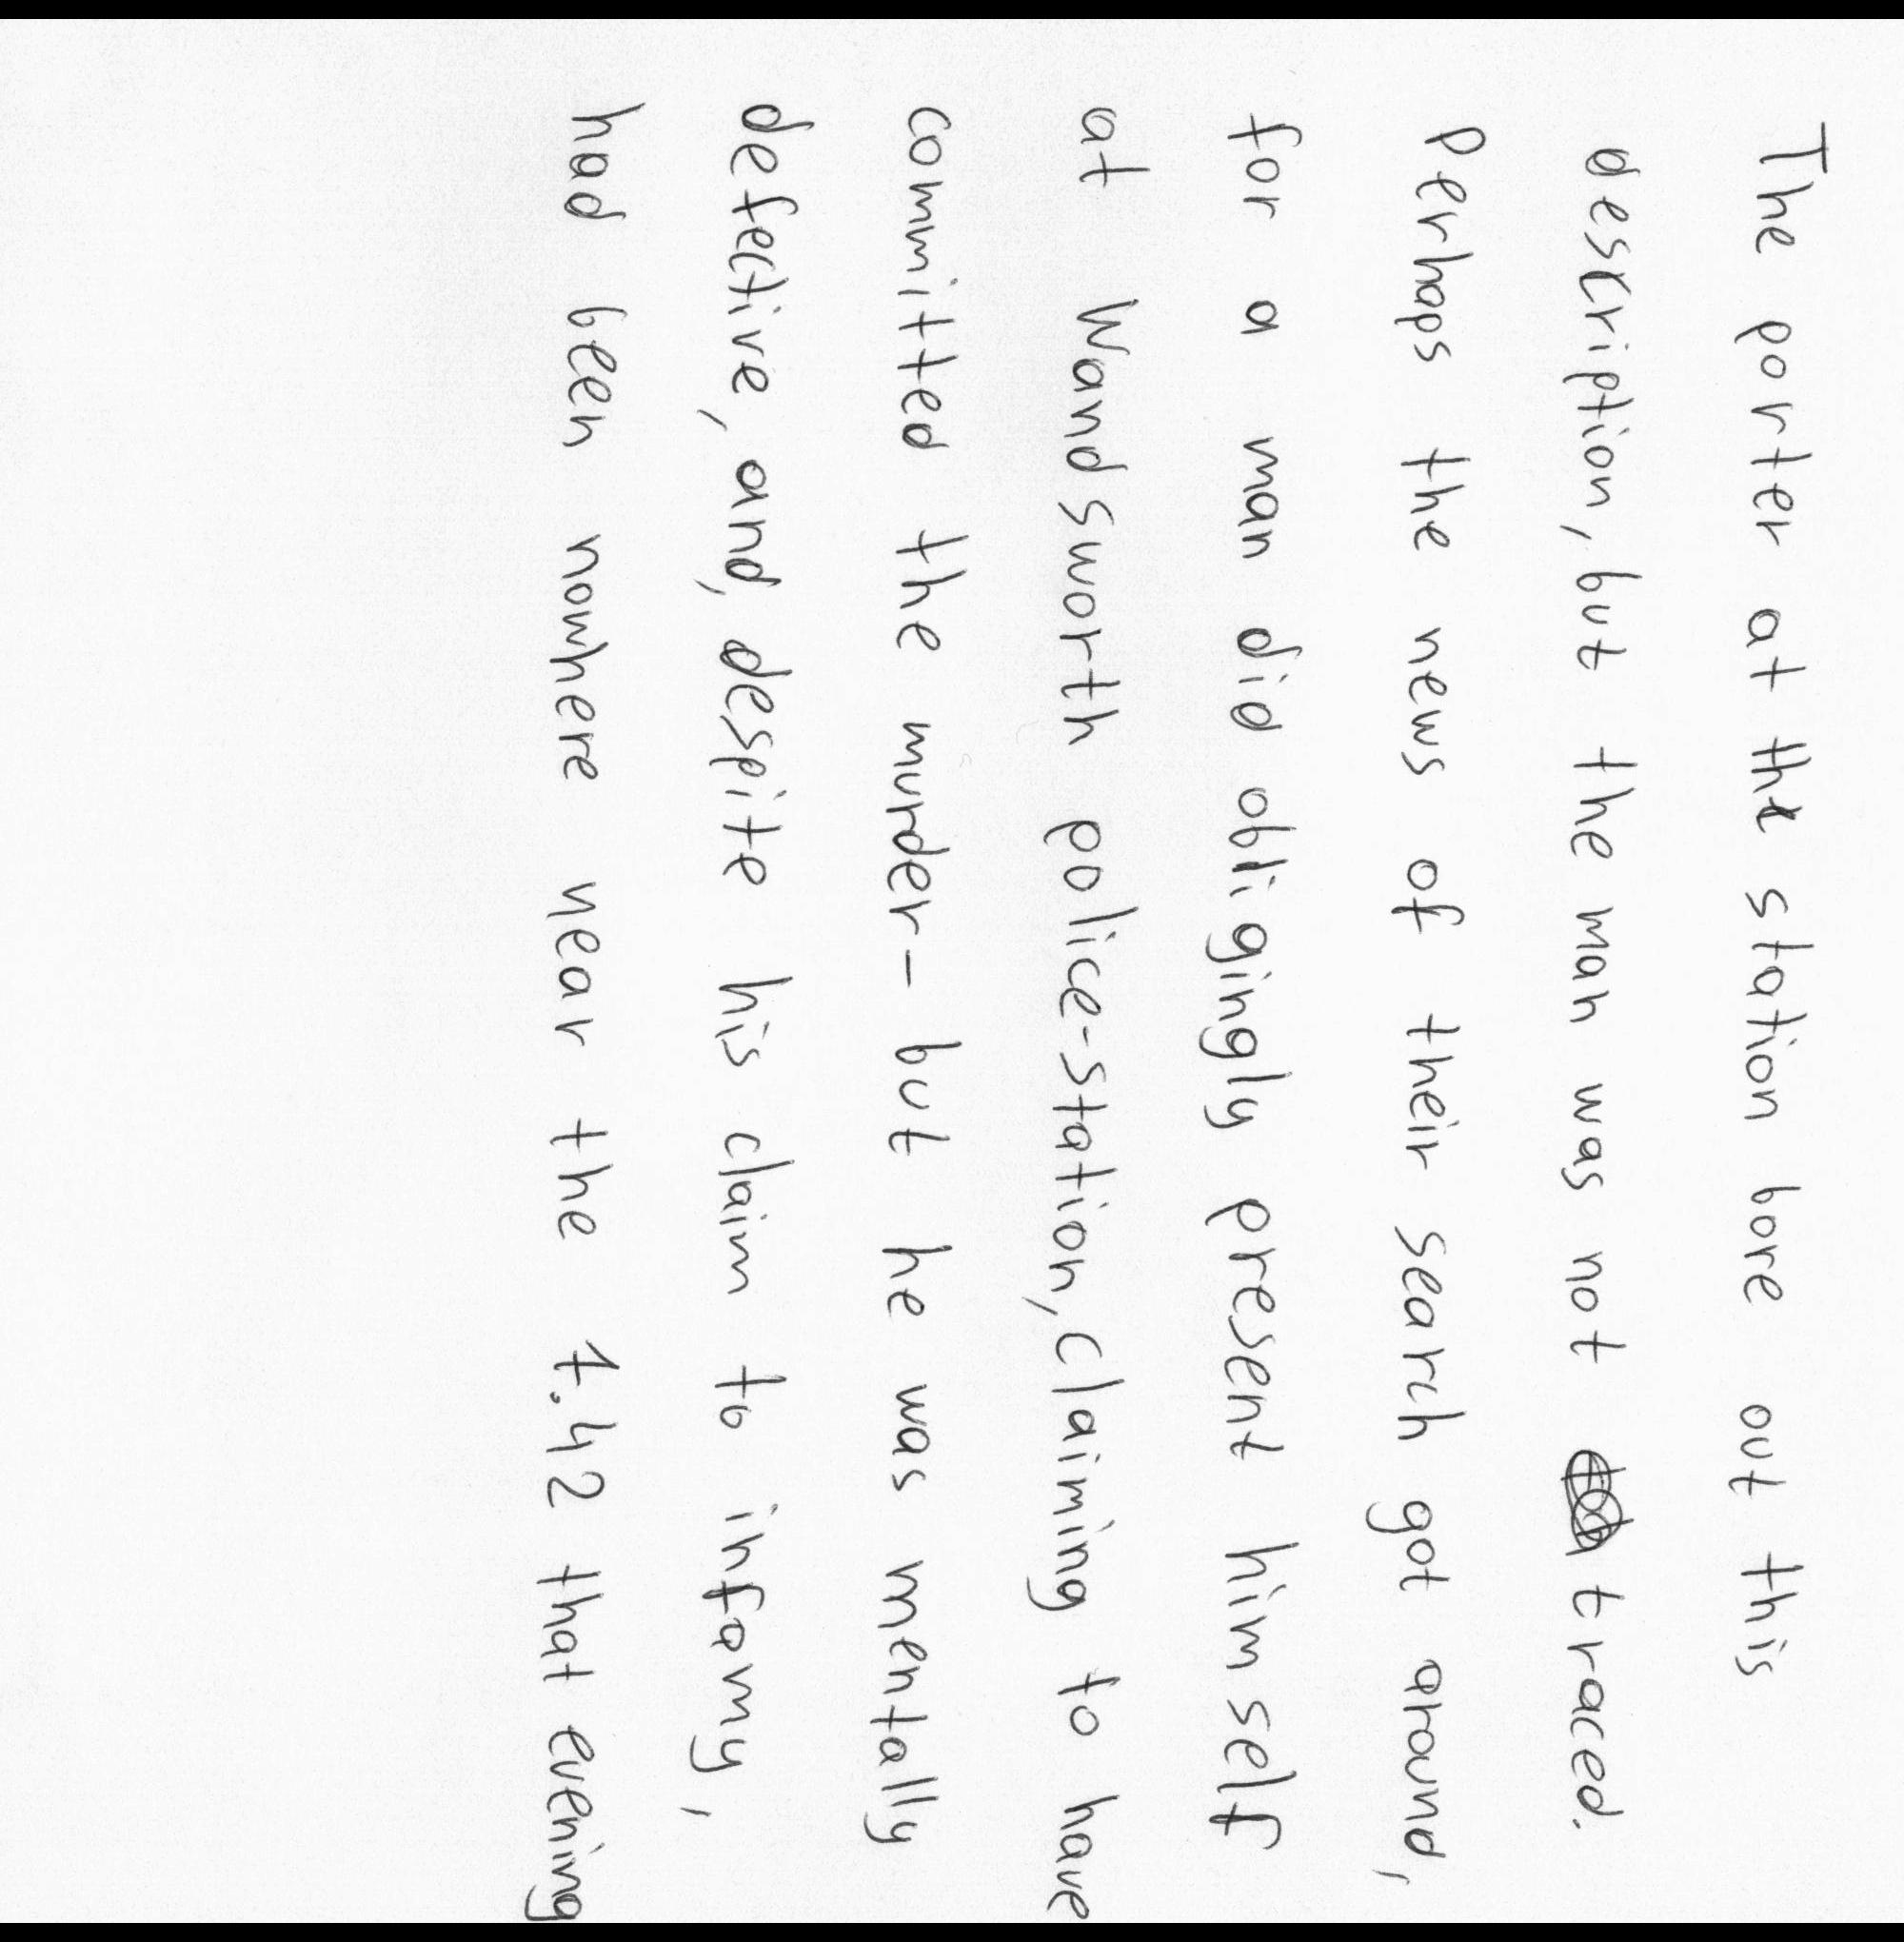 The porter at the station bore out this
description, but the man was not traced.
Perhaps the news of their search got around,
for a man did obligingly present himself
at Wandsworth police-station, claiming to have
committed the murder- but he was mentally
defective, and, despite his claim to infamy,
had been nowhere near the 1.42 that evening